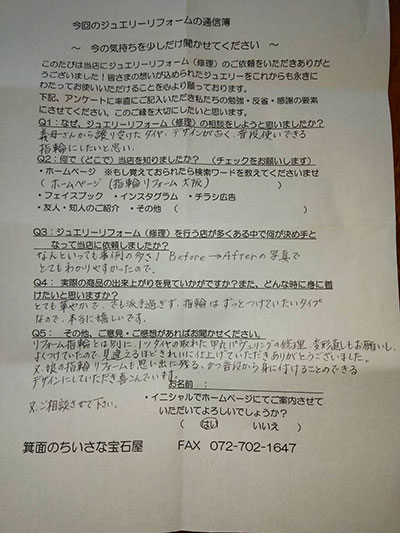 今回のジュエリーリフォームの通信簿
～ 今の気持ちを少しだけ聞かせてください ～
このたびは当店にジュエリーリフォーム(修理)のご依頼をいただきありがと
うございました！皆さまの想いが込められたジュエリーをこれからも永きに
わたってお使いいただけることを心より願っております。
下記、アンケートに率直にご記入いただき私たちの勉強・反省・感謝の要素
にさせてください。このご縁を大切にしたいと思います。
Q1：なぜ、ジュエリーリフォーム(修理)の相談をしようと思いましたか？
義母さんから譲り受けたダイヤ、デザインが古く、普段使いできる
指輪にしたいと思い。
Q2：何で(どこで)当店を知りましたか？ (チェックをお願いします)
・ホームページ ※もし覚えておられたら検索ワードを教えてくださいませ
( ホームページ (指輪リフォーム 大阪) )
・フェイスブック ・インスタグラム ・チラシ広告
・友人・知人のご紹介 ・その他 ( )
Q3：ジュエリーリフォーム(修理)を行う店が多くある中で何が決め手と
なって当店に依頼しましたか？
なんといっても事例の多さ！Before→Afterの写真で
とてもわかりやすかったので。
Q4： 実際の商品の出来上がりを見ていかがですか？また、どんな時に身に着
けたいと思いますか？
とても華やかで、でも派手過ぎず、指輪はずっとつけていたいタイプ
なので、本当に嬉しいです。
Q5： その他、ご意見・ご感想があればお聞かせください。
リフォーム指輪とは別に、1ツダイヤの取れた甲丸パヴェリングの修理、変形直しもお願いし、
よくつけていたので、見違えるほどきれいに仕上げていただきありがとうございました。
又、娘の指輪リフォームも思い出に残る、かつ普段から身に付けることのできる
デザインにしていただき喜んでいます。
お名前：
又、ご相談させて下さい。
・イニシャルでホームページにてご案内させて
いただいてよろしいでしょうか？
( はい いいえ )
箕面のちいさな宝石屋 FAX 072-702-1647